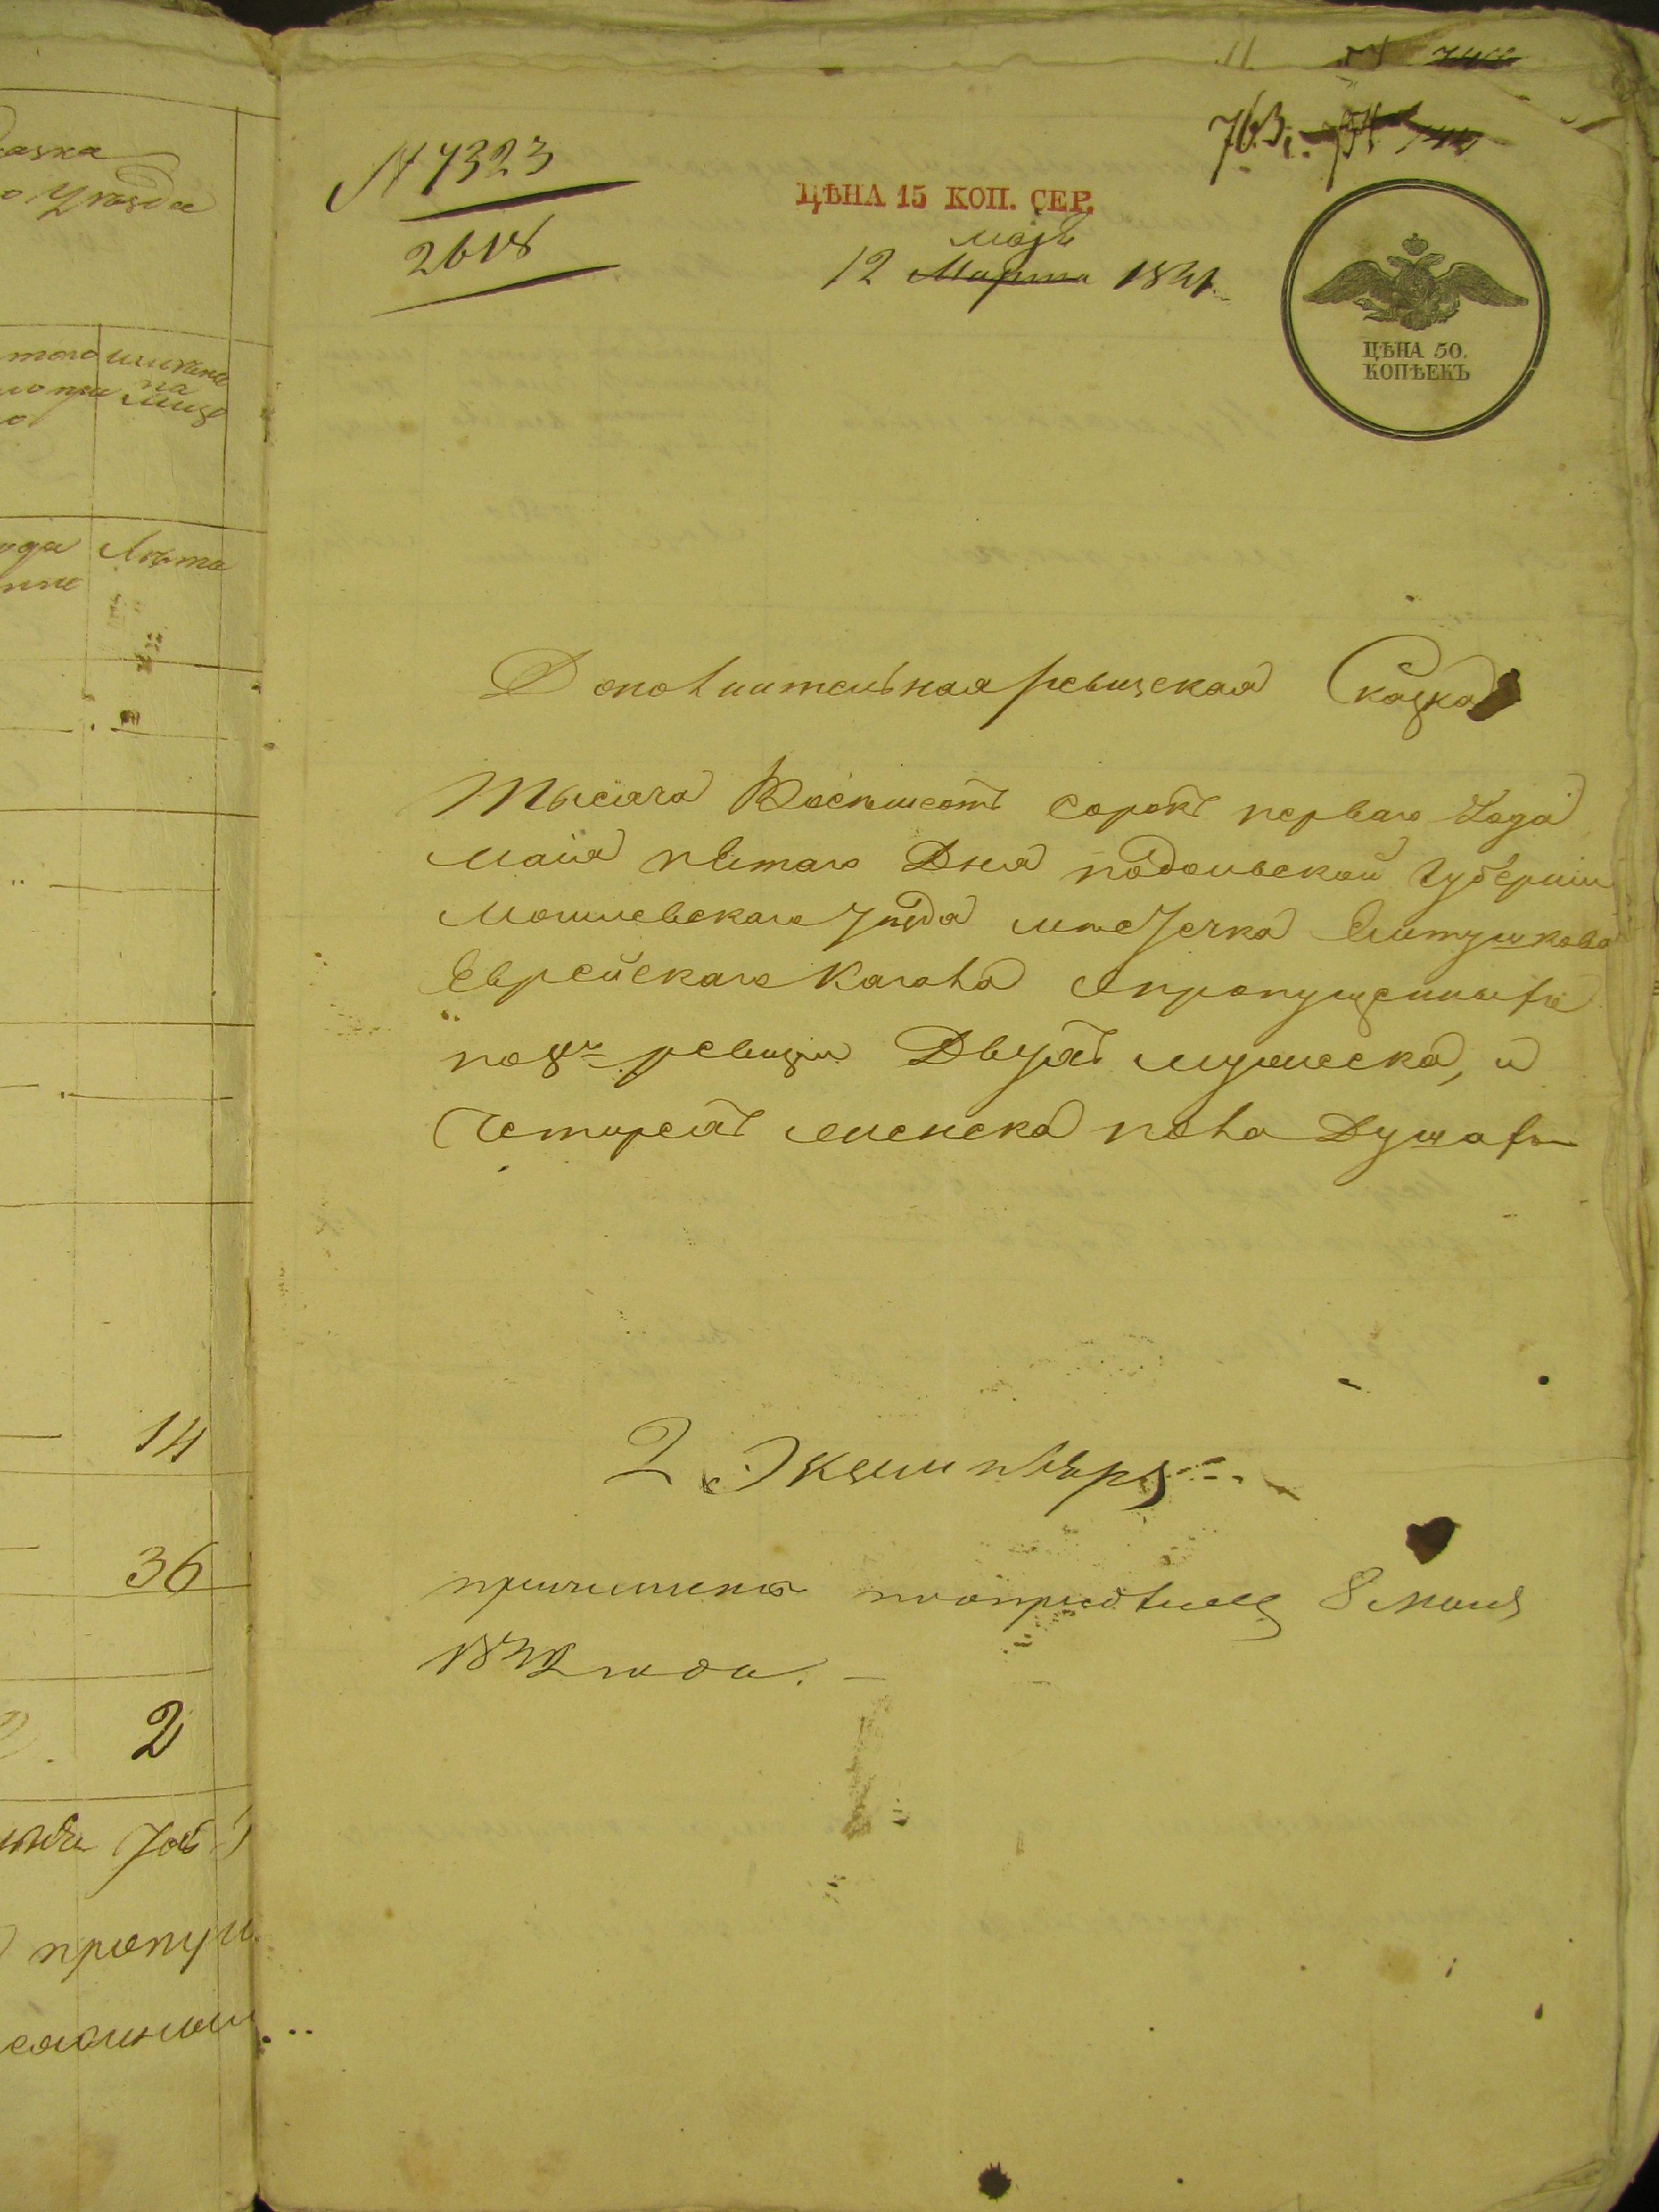 763.
№ 7323
2618
ЦѢНА 15 КОП. СЕР.
Мая
12 Марта 1841
ЦѢНА 50.
КОПѢЕКЪ
Дополнительная ревизская Сказка
Тысяча Восемьсотъ сорокъ перваго года
Маия пятаго Дня подольской губерніи
Могилевскаго уѣзда мѣстечка Снитушкова
Еврейскаго Кагала О пропущенныхъ
по 8й ревизіи Двухъ мужеска, и
Четырехъ женска пола Душахъ
2 Экземпляръ
причислены 8 маия
1842 года.
казка
о Уѣзда
на
лицо
Лѣта
14
36
2
пропущ